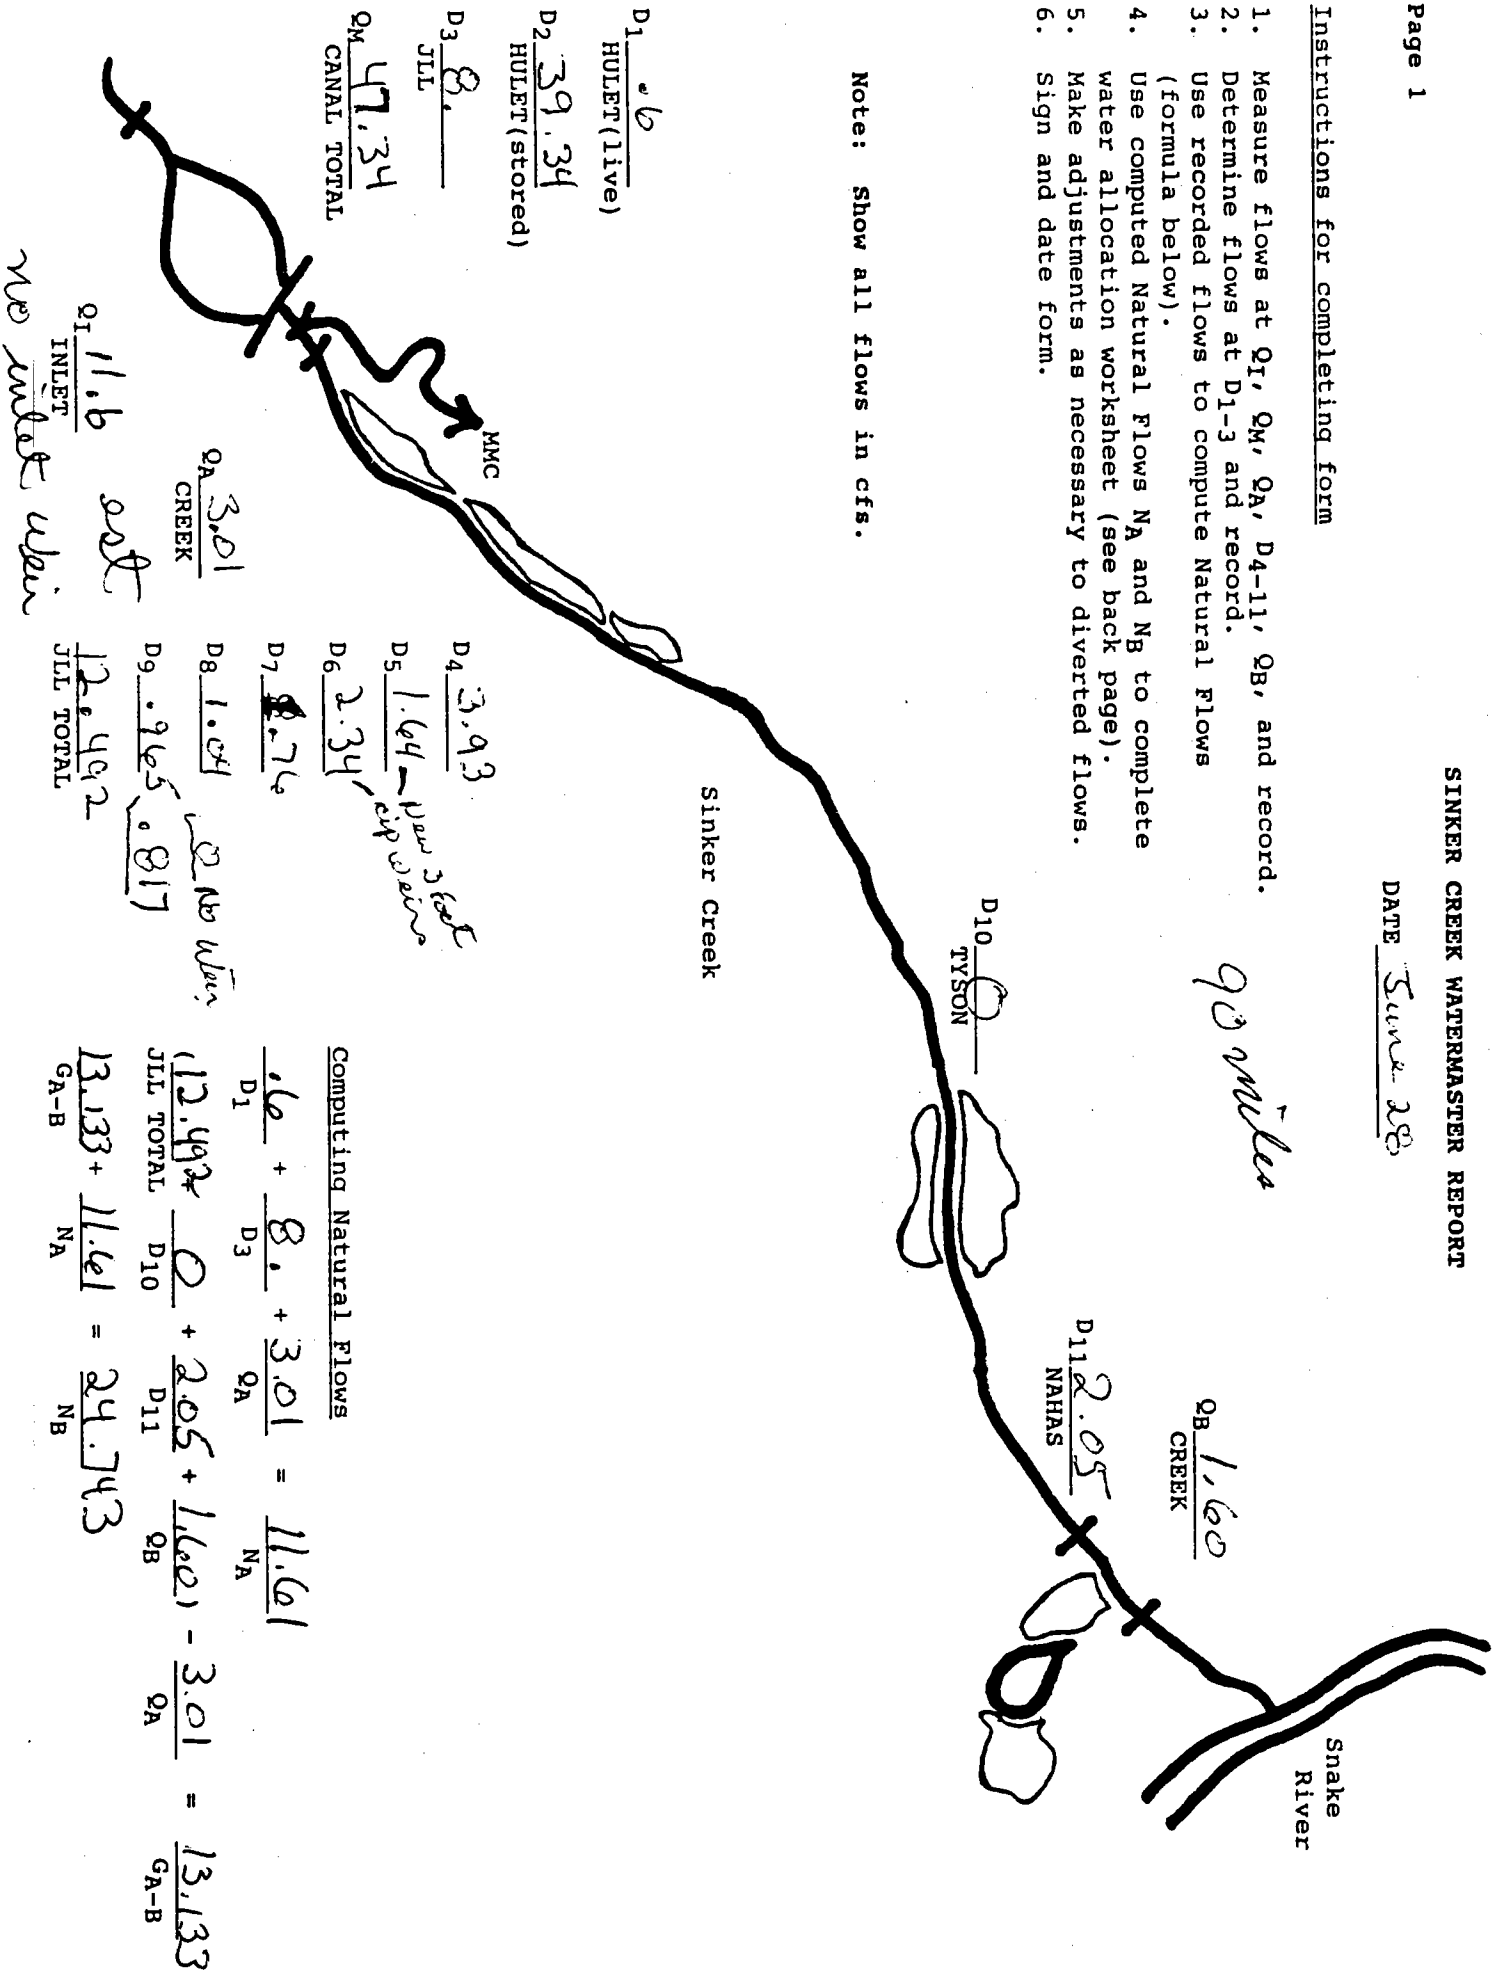 Page 1
SINKER CREEK WATERMASTER REPORT
DATE June 28
Instructions for completing form
1. Measure flows at QI, QM, QA, D4-11, QB, and record.
2. Determine flows at D1-3 and record.
3. Use recorded flows to compute Natural Flows
(formula below).
4. Use computed Natural Flows NA and NB to complete
water allocation worksheet (see back page).
5. Make adjustments as necessary to diverted flows.
6. Sign and date form.
90 miles
Note: Show all flows in cfs.
D1 .6
HULET(live)
D2 39.34
HULET(stored)
D3 8.
JLL
QM 47.34
CANAL TOTAL
MMC
QI 11.6 est
INLET
no inlet weir
QA 3.01
CREEK
D4 3.93
D5 1.64 - New 3 foot
D6 2.34 cip weirs
D7 .76
D8 1.04 No Weir
D9 .965 .817
12.492
JLL TOTAL
Sinker Creek
D10 0
TYSON
D11 2.05
NAHAS
QB 1.60
CREEK
Snake
River
Computing Natural Flows
.6 + 8. + 3.01 = 11.61
D1 D3 QA NA
(12.492+ 0 + 2.05 + 1.60) - 3.01 = 13.133
JLL TOTAL D10 D11 QB QA GA-B
13.133+ 11.61 = 24.743
GA-B NA NB